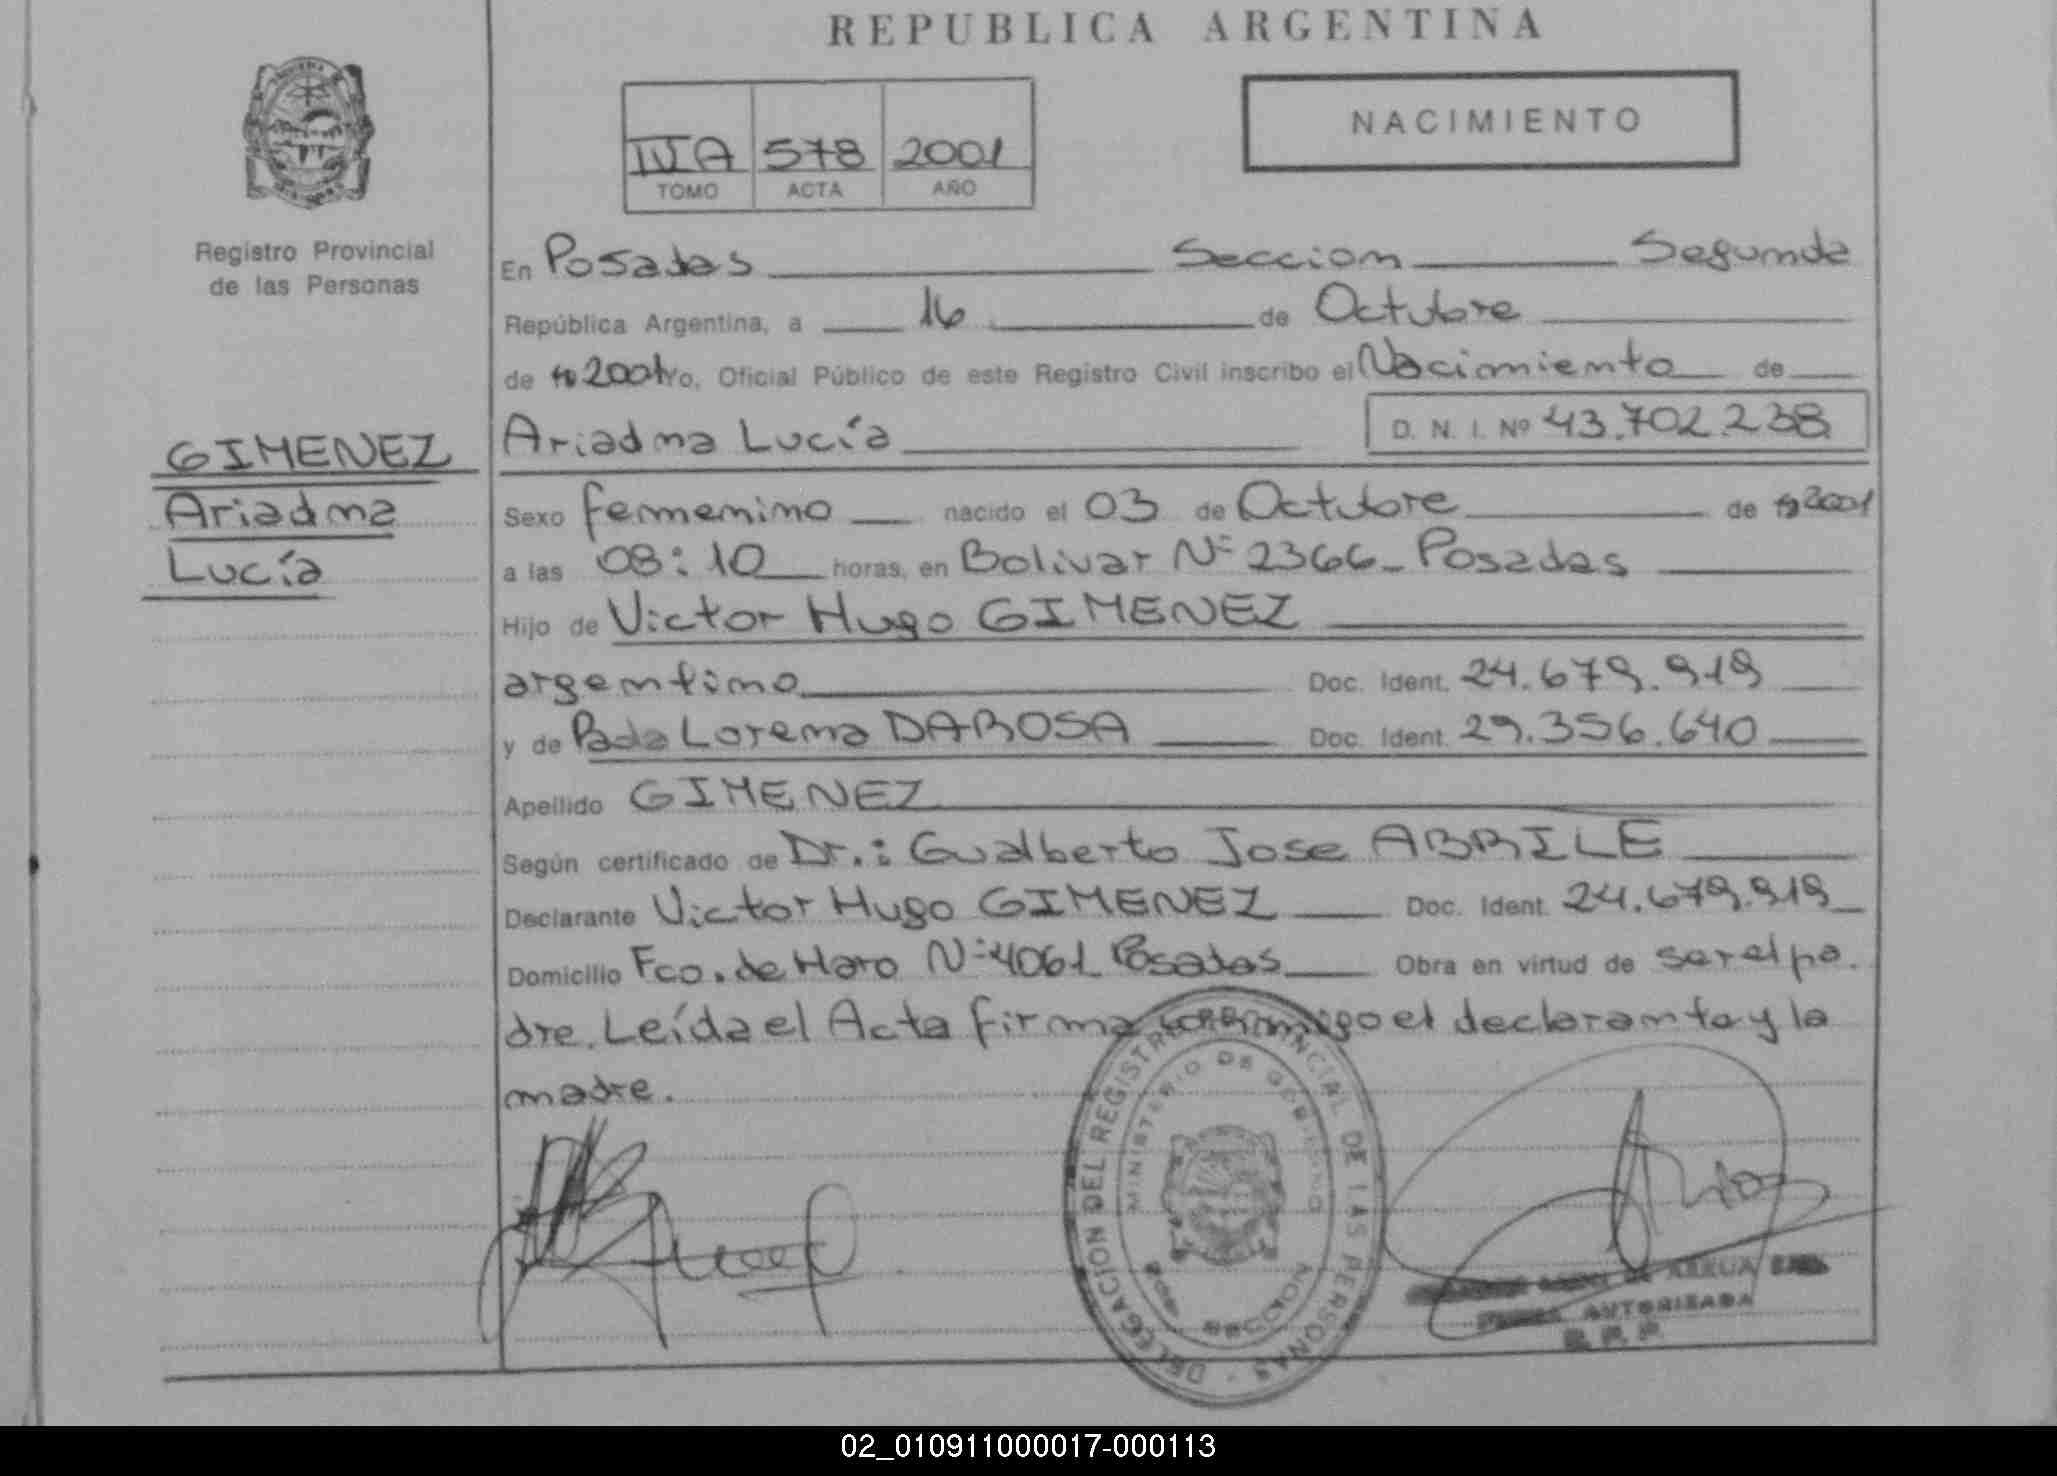 REPUBLICA ARGENTINA
NACIMIENTO
578 2001
TOMO ACTA AÑO
Registro Provincial
de las Personas
GIMENEZ
Ariadna
Lucía
En Posadas Sección Segunda
República Argentina, a 16 de Octubre
de 2001 Yo, Oficial Público de este Registro Civil inscribo el Nacimiento de
Ariadna Lucía D. N. I. Nº 43.702.238
Sexo femenino nacido el 03 de Octubre de 2001
a las 08:10 horas, en Bolivar Nº 2366 - Posadas
Hijo de Victor Hugo GIMENEZ
argentino Doc. Ident. 24.679.919
y de Lorena DAROSA Doc. Ident. 29.356.640
Apellido GIMENEZ
Según certificado de Dr.: Gualberto Jose ABRILE
Declarante Victor Hugo GIMENEZ Doc. Ident. 24.679.919
Domicilio Fco. de Haro Nº 4061 Posadas Obra en virtud de ser el pa.
dre. Leída el Acta firma conmigo el declarante y la
madre.
DELEGACION DEL REGISTRO PROVINCIAL DE LAS PERSONAS
MINISTERIO DE GOBIERNO
AUTORIZADA
02_010911000017-000113